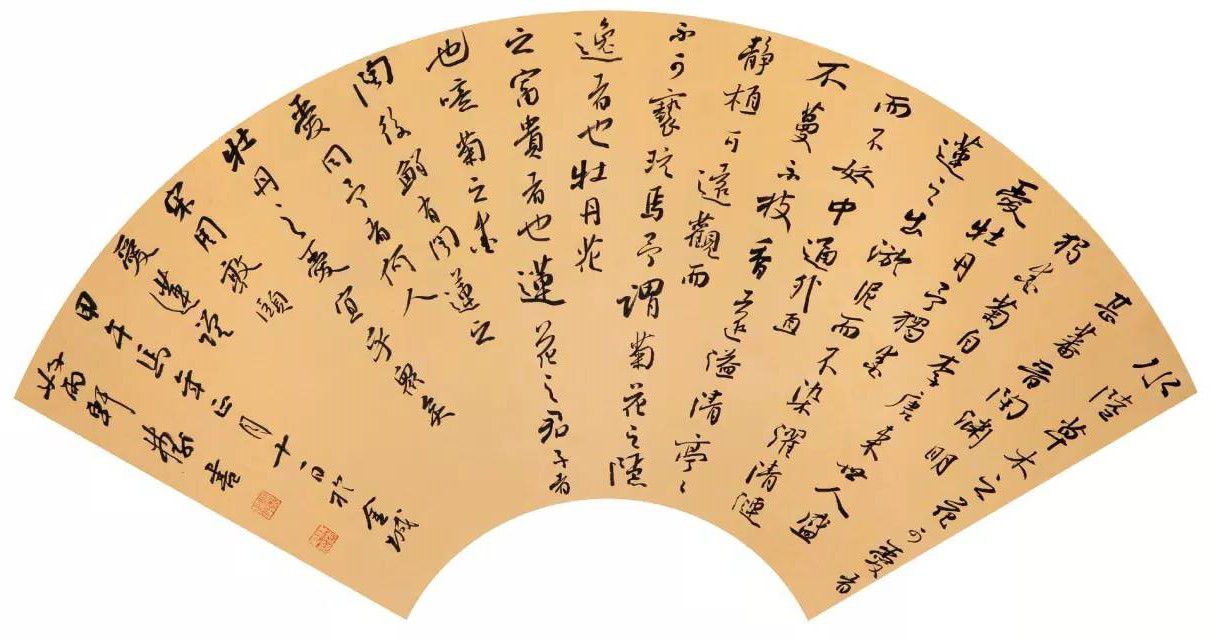 水陸草木之花可愛者
甚蕃晋陶渊明
獨愛菊自李唐来世人盛
愛牡丹予獨愛
蓮之出淤泥而不染濯清漣
而不妖中通外直
不蔓不枝香遠溢清亭々
静植可遠觀而
不可褻玩焉予謂菊花之隱
逸者也牡丹花
之富貴者也蓮花之君子者
也噫菊之愛
陶後鮮有闻蓮之
愛同予者何人
牡丹之愛宜乎衆矣
宋周敦頤
愛蓮説
甲午馬年正月十日於金城
南軒書